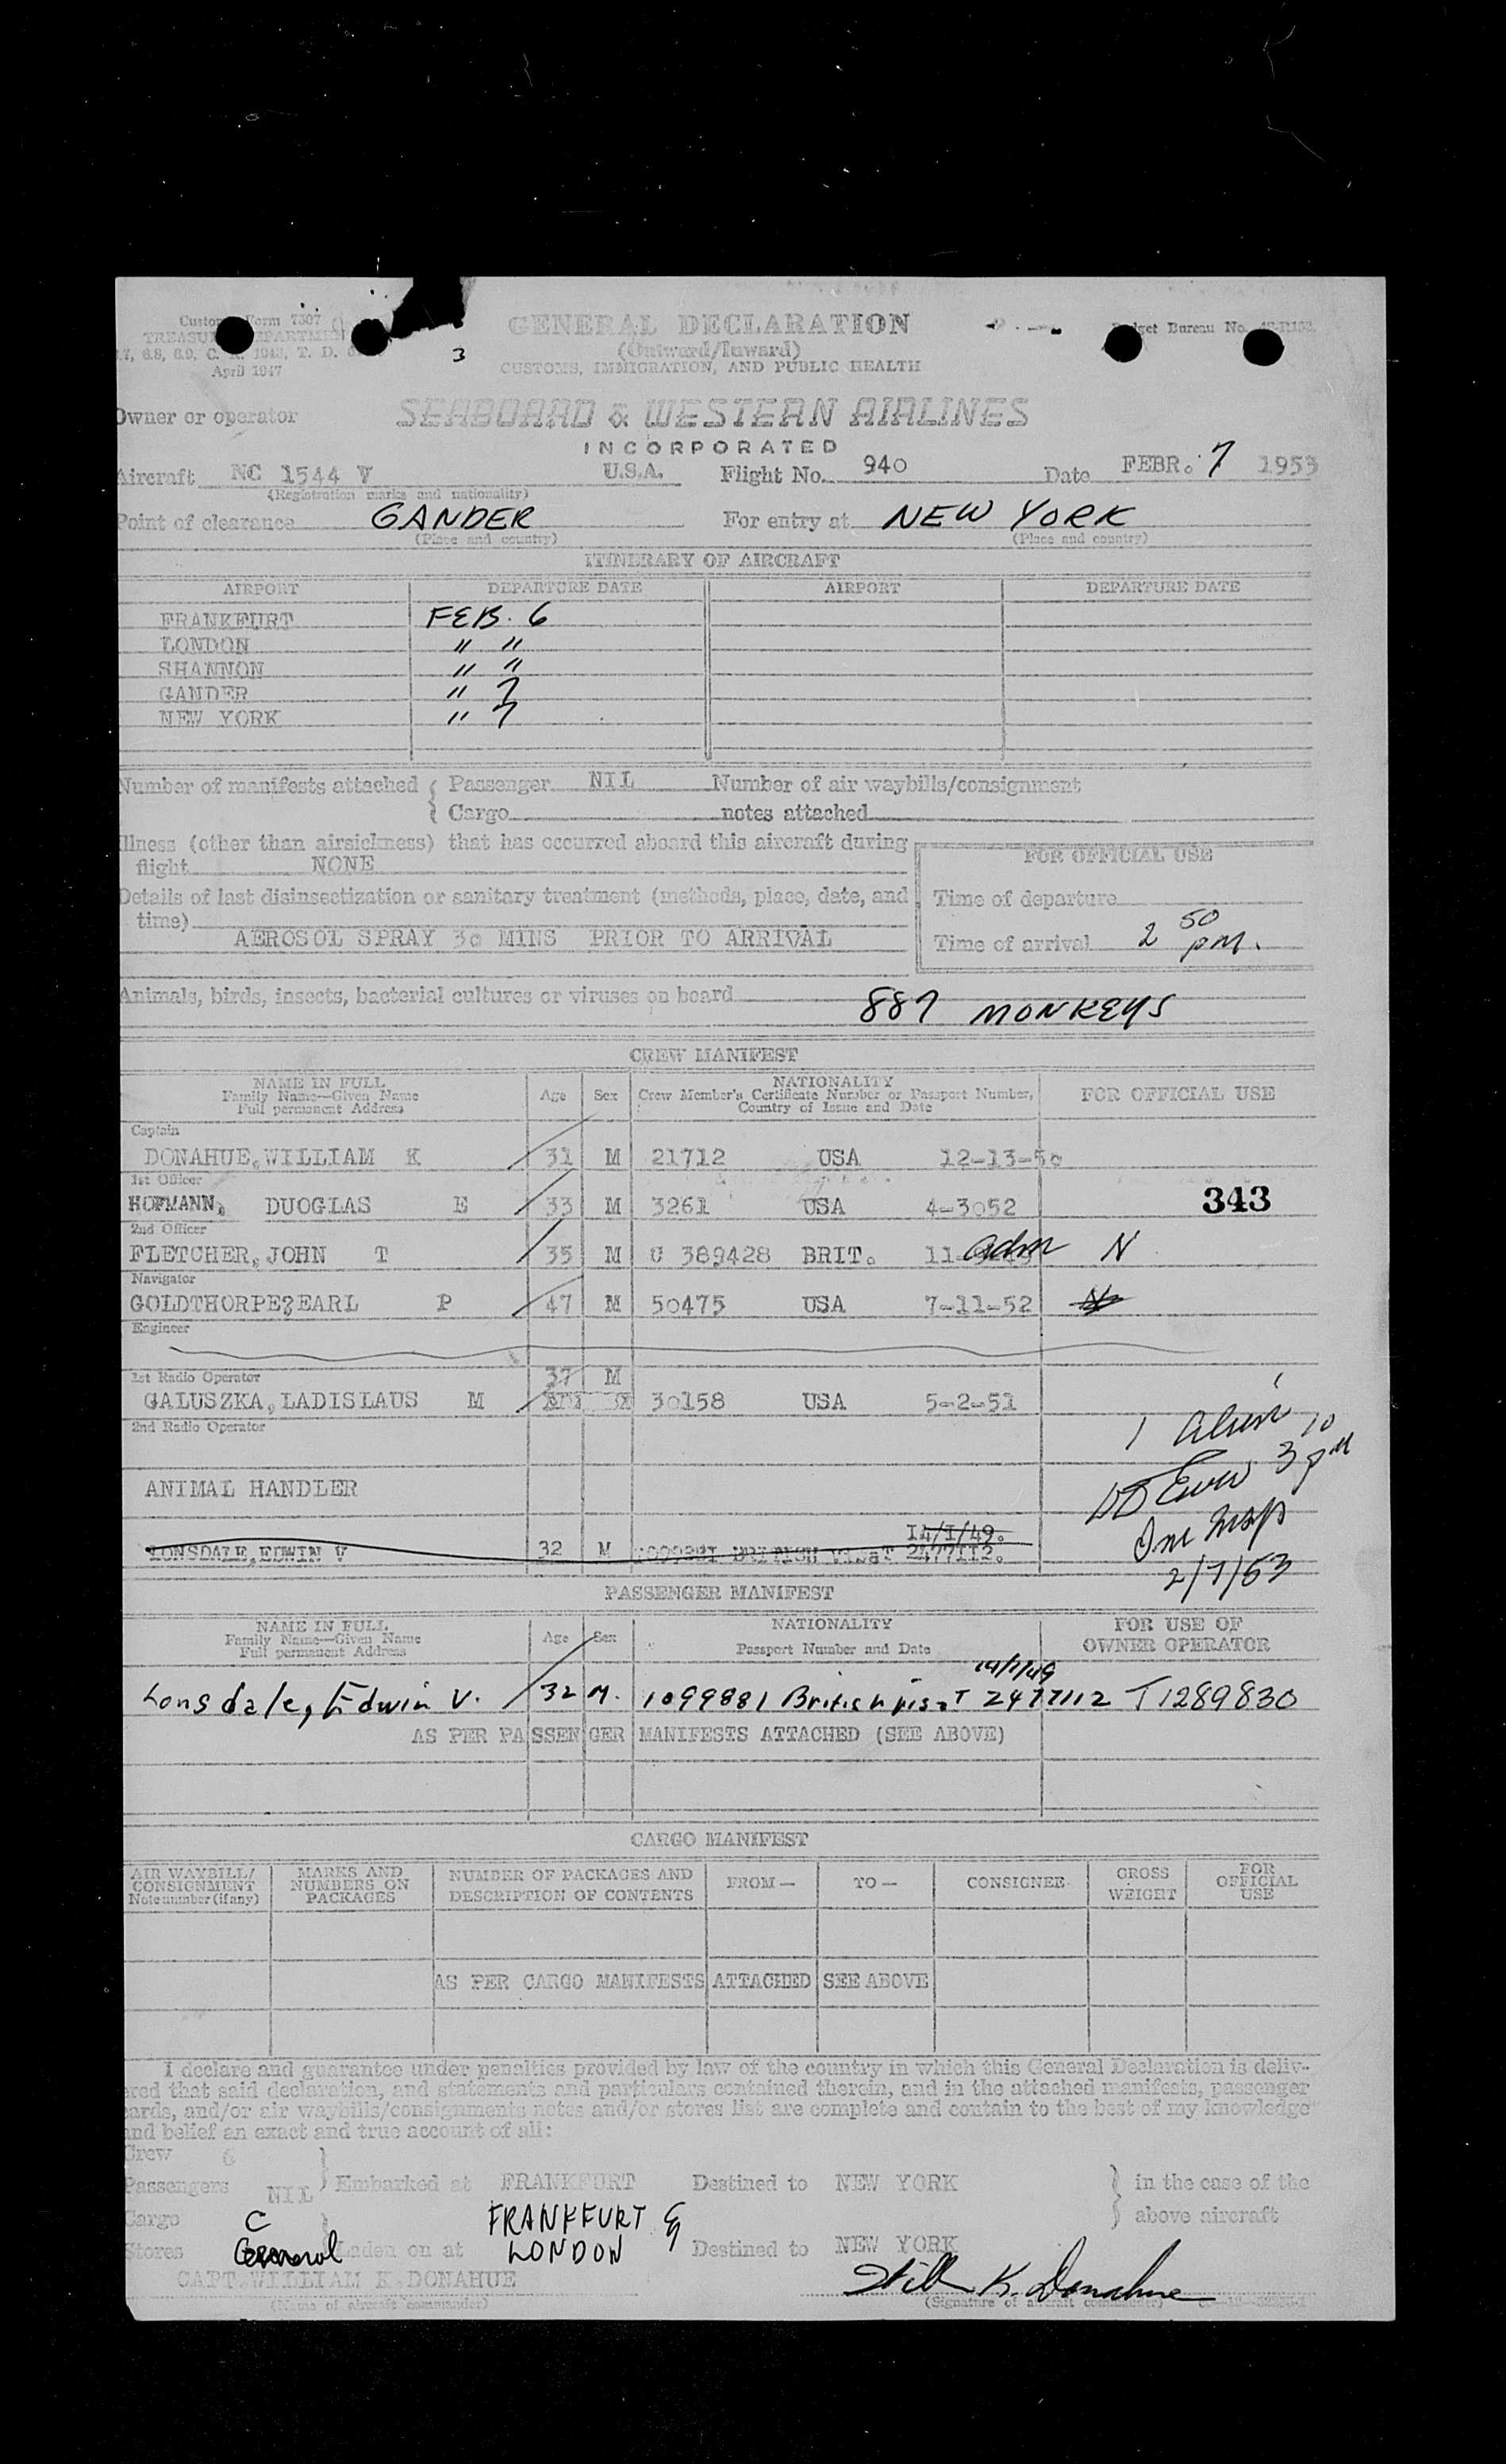 Customs Form 7507
TREASURY DEPARTMENT
April 1947
3
GENERAL DECLARATION
(Outward/Inward)
CUSTOMS, IMMIGRATION, AND PUBLIC HEALTH
Budget Bureau No.
Owner or operator SEABOARD & WESTERN AIRLINES
INCORPORATED
Aircraft NC 1544 V U.S.A. Flight No. 940 Date FEBR. 7 1953
(Registration marks and nationality)
Point of clearance GANDER For entry at NEW YORK
(Place and country) (Place and country)
ITINERARY OF AIRCRAFT
AIRPORT DEPARTURE DATE AIRPORT DEPARTURE DATE
FRANKFURT FEB. 6
LONDON " "
SHANNON " "
GANDER " 7
NEW YORK " 7
Number of manifests attached { Passenger NIL Number of air waybills/consignment
Cargo notes attached
Illness (other than airsickness) that has occurred aboard this aircraft during
flight NONE
FOR OFFICIAL USE
Details of last disinsectization or sanitary treatment (methods, place, date, and
time)
AEROSOL SPRAY 30 MINS PRIOR TO ARRIVAL
Time of departure
Time of arrival 2 50 PM.
Animals, birds, insects, bacterial cultures or viruses on board
887 MONKEYS
CREW MANIFEST
NAME IN FULL
Family Name—Given Name
Full permanent Address
Age Sex
NATIONALITY
Crew Member's Certificate Number or Passport Number,
Country of Issue and Date
FOR OFFICIAL USE
Captain
DONAHUE,WILLIAM K 31 M 21712 USA 12-13-50
1st Officer
HOFMANN, DUOGLAS E 33 M 3261 USA 4-3052 343
2nd Officer
FLETCHER,JOHN T 35 M C 389428 BRIT. adm N
Navigator
GOLDTHORPE?EARL P 47 M 50475 USA 7-11-52
Engineer
1st Radio Operator 37 M
GALUSZKA,LADISLAUS M 30158 USA 5-2-51
2nd Radio Operator
ANIMAL HANDLER
14/1/49.
LONSDALE,EDWIN V 32 M 2477112.
1
3 PM
2/7/53
PASSENGER MANIFEST
NAME IN FULL
Family Name—Given Name
Full permanent Address
Age Sex
NATIONALITY
Passport Number and Date
FOR USE OF
OWNER OPERATOR
14/1/49
Lonsdale, Edwin V. 32 M. 1099881 British visaT 2477112 T1289830
AS PER PASSENGER MANIFESTS ATTACHED (SEE ABOVE)
CARGO MANIFEST
AIR WAYBILL/
CONSIGNMENT
Note number (if any)
MARKS AND
NUMBERS ON
PACKAGES
NUMBER OF PACKAGES AND
DESCRIPTION OF CONTENTS
FROM— TO— CONSIGNEE
GROSS
WEIGHT
FOR
OFFICIAL
USE
AS PER CARGO MANIFESTS ATTACHED SEE ABOVE
I declare and guarantee under penalties provided by law of the country in which this General Declaration is deliv-
ered that said declaration, and statements and particulars contained therein, and in the attached manifests, passenger
cards, and/or air waybills/consignments notes and/or stores list are complete and contain to the best of my knowledge
and belief an exact and true account of all:
Crew 6
Passengers NIL Embarked at FRANKFURT Destined to NEW YORK in the case of the
above aircraft
Cargo C FRANKFURT &
Stores General Laden on at LONDON Destined to NEW YORK
CAPT.WILLIAM K.DONAHUE
Will K. Donahue
(Name of aircraft commander) (Signature of aircraft commander)